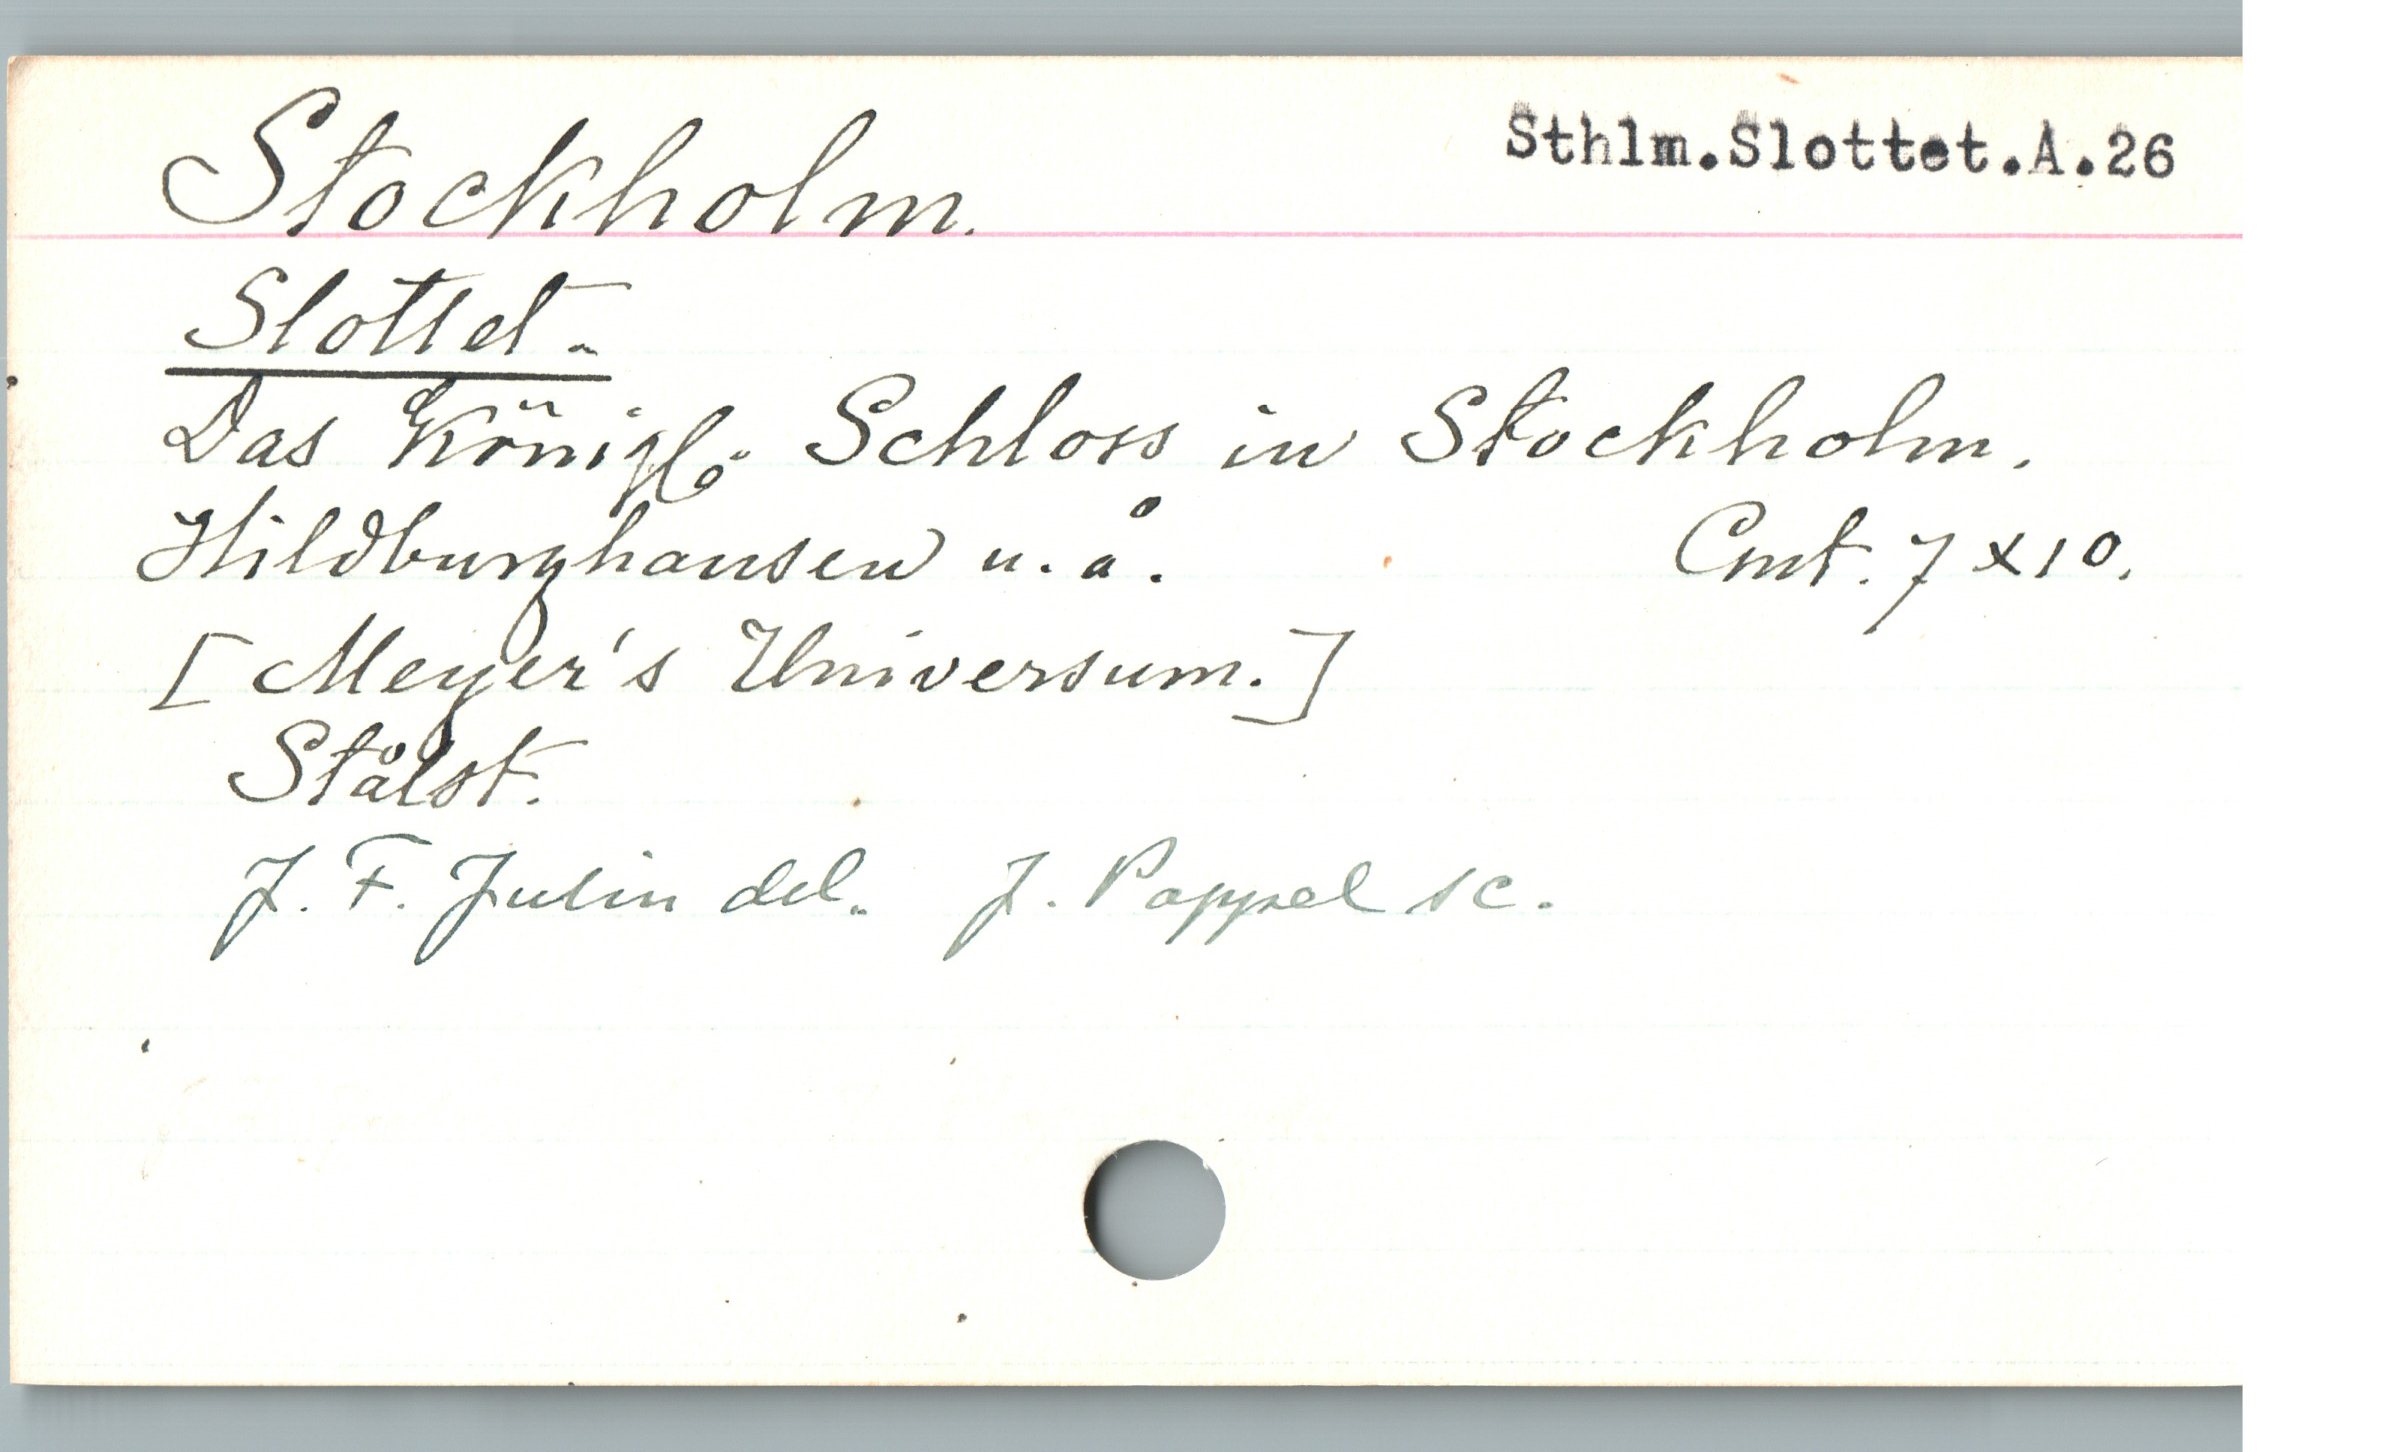 Stockholm.
Sthlm.Slottet.A.26
Slottet.
Das Königl. Schloss in Stockholm.
Hildburghausen u. å. Cmt. 7 x 10.
[Meyer's Universum.]
Stålst.
J. F. Julin del. J. Poppel sc.